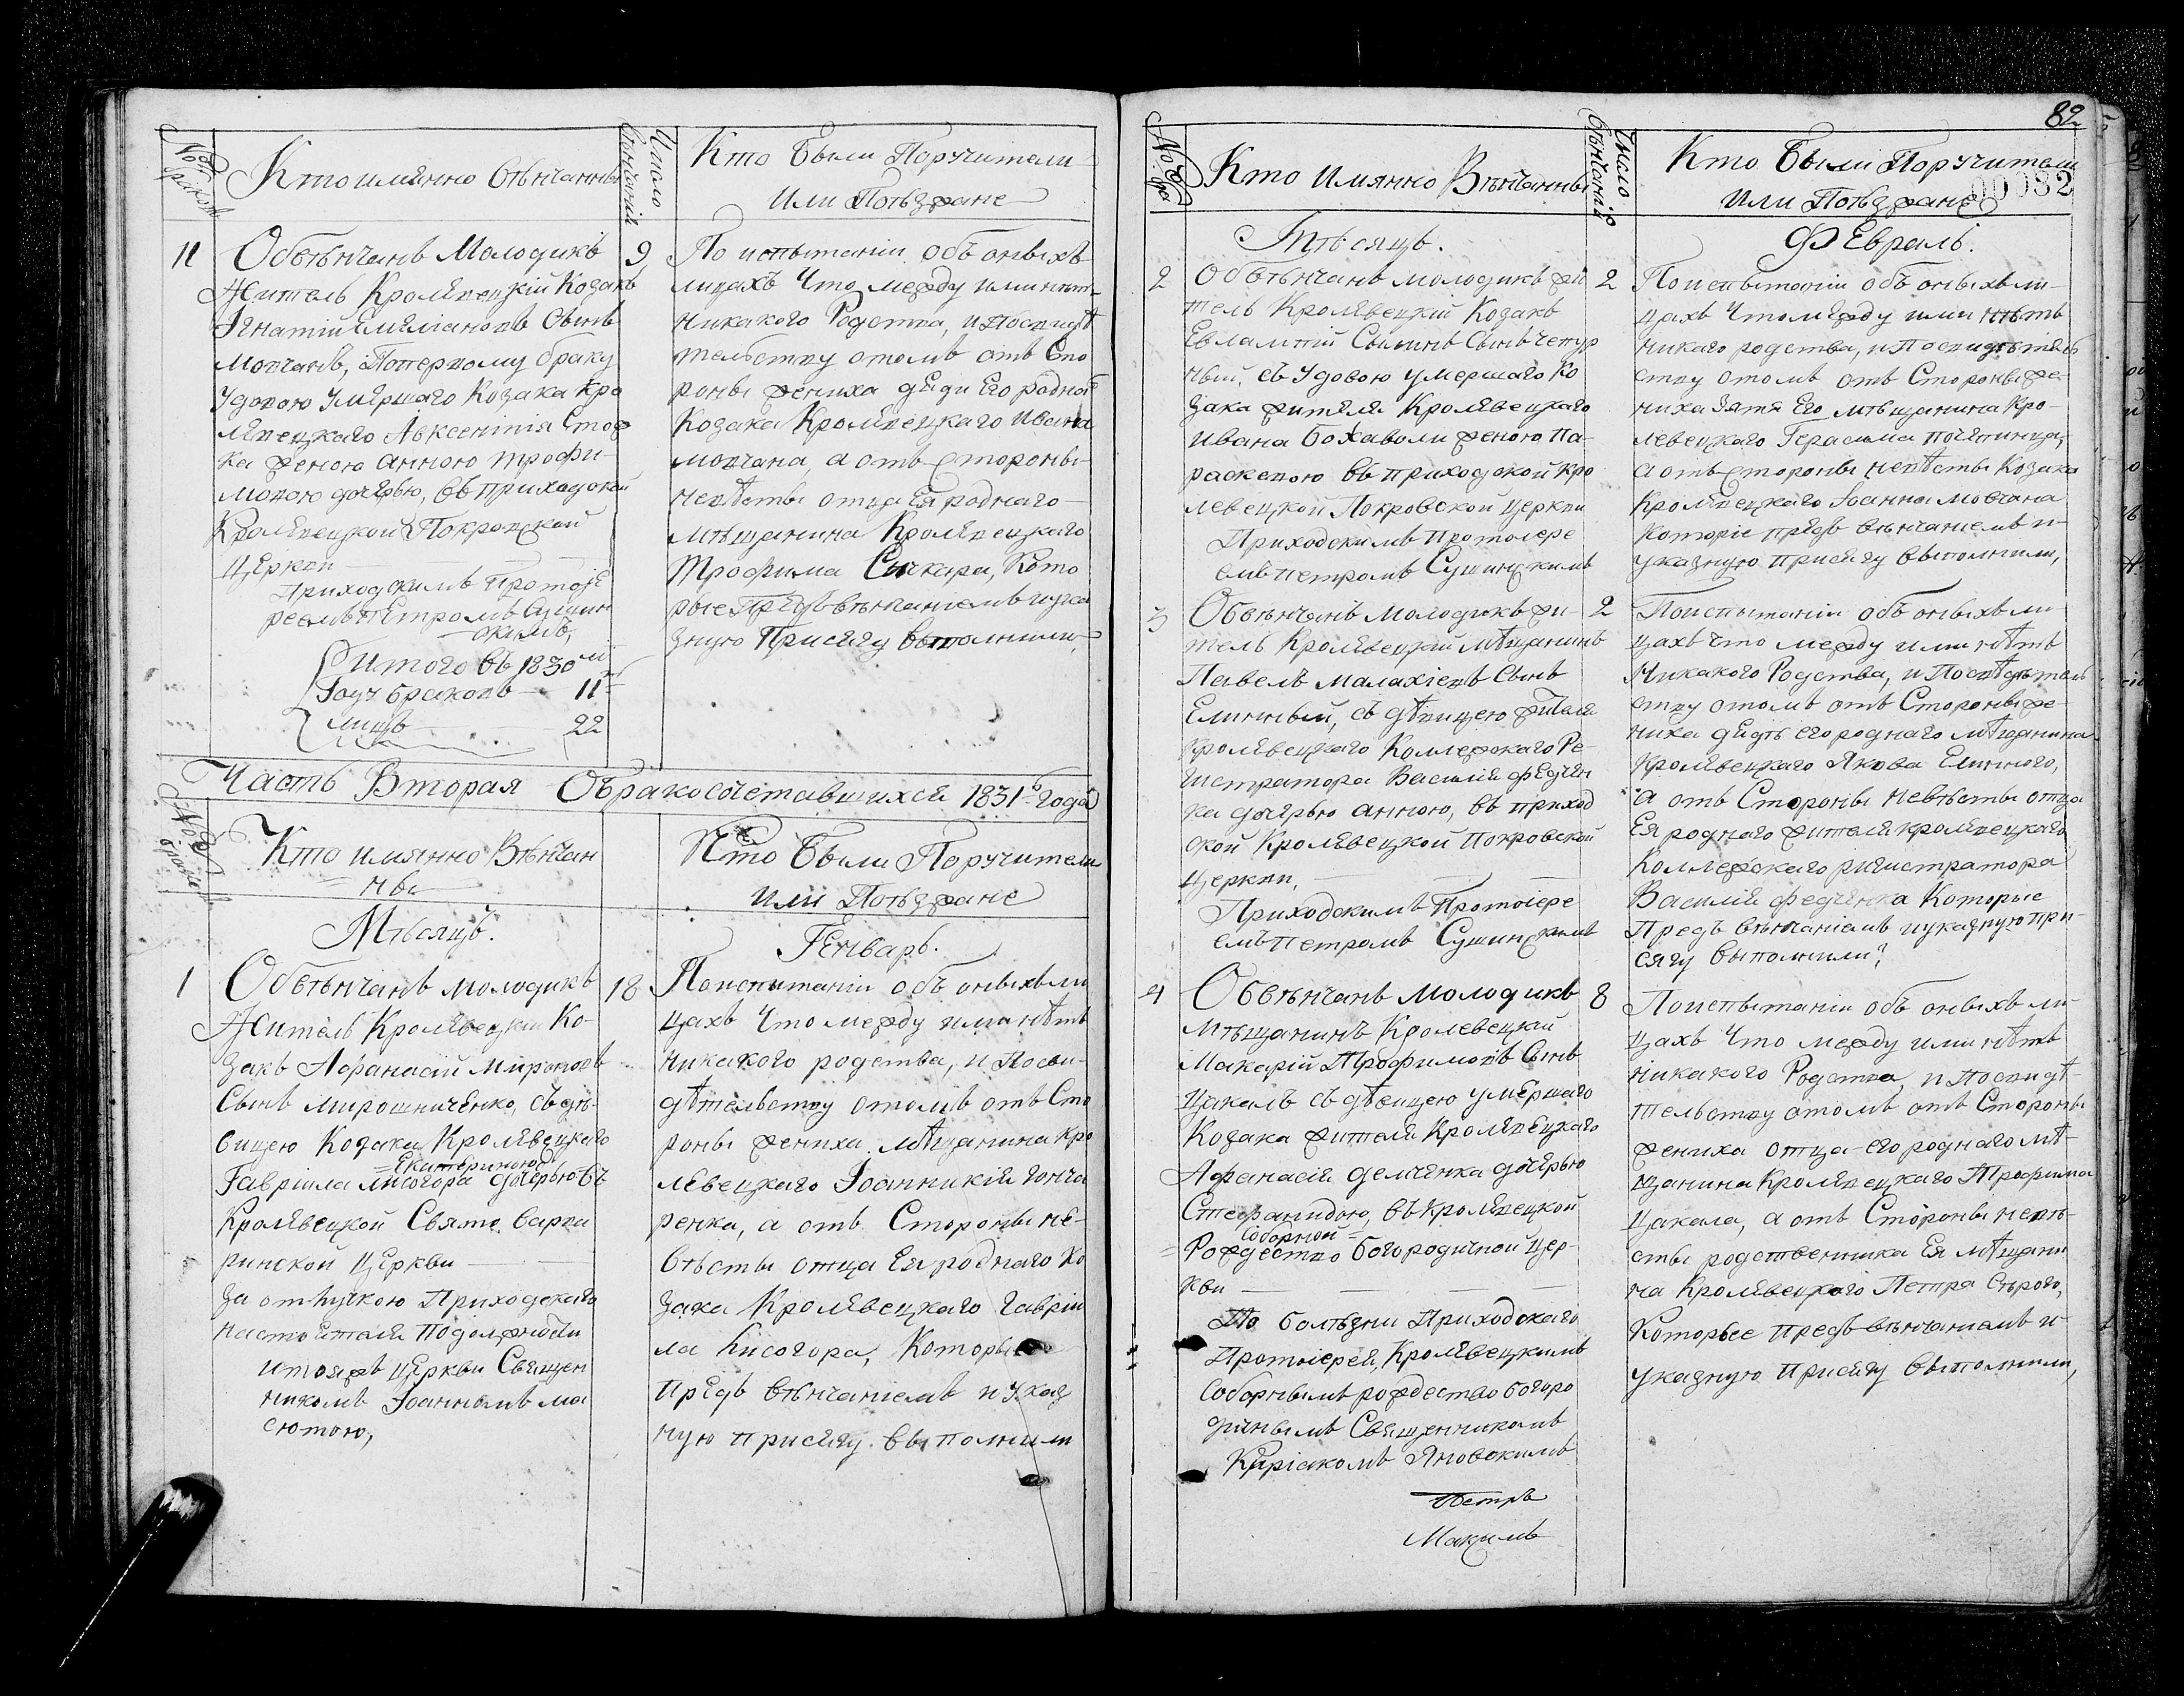 № браковъ
Кто имянно вѣнчанны
Число вѣнчаній
Кто были Поручители
или Поѣзжане
11
Обвѣнчанъ Молодикъ
Житель Кролевецкій Козакъ
Игнатій Емеліановъ Сынъ
Мовчанъ, Поперьвому браку
Удовою умершаго Козака Кро
левецкаго Авксентія Стож
ка женою Анною Трофи-
мовою дочерью, въ приходской
Кролевецкой Покровской
Церкви
Приходскимъ Протоіе
реемъ Петромъ Сушин
скимъ,
Итого въ 1830мъ
Году браковъ 11ть
лицъ 22
9
По испытаніи объ оныхъ
лицахъ Что между ими нѣт
никакого Родства, и Посвидѣ
тельству отомъ отъ Сто
роны жениха дяди Его родной
Козака Кролевецкаго Ивана
Мовчана, а отъ Стороны
невѣсты отца Ея роднаго
мѣщанина Кролевецкаго
Трофима Сичкара, Кото
рые Предъ вѣнчаніемъ иука
зную Присягу выполнили,
Часть Вторая Обракосочетавшихся 1831го года
№ браковъ
Кто имянно Вѣнчан
ны
Кто были Поручители
или Поѣзжане
Мѣсяцъ.
Генварь.
1
Обвѣнчанъ молодикъ
Житель Кролевецкій Ко-
закъ Афанасій Мироновъ
Сынъ Мирошниченко, съ дѣ-
вицею Козака Кролевецкаго
= Екатериною
Гавріила Лисогора дочерью въ
Кролевецкой Свято Варва
ринской Церкви
За отпускою Приходскаго
настоятеля Подолжности
итояжъ Церкви Священ
никомъ Іоанномъ Ма
сютою,
18
Поиспытаніи объ оныхъ ли
цахъ Что между ими нѣтъ
никакого родства, и Посви-
дѣтельству отомъ отъ Сто
роны жениха мѣщанина Кро
левецкаго Іоанникія Гонча
ренка, а отъ Стороны не-
вѣсты отца Ея роднаго Ко
зака Кролевецкаго Гавріи
ла Лисогора, Которые
предъ вѣнчаніемъ и указ
ную присягу выполнили
82
00082
№ бра
Кто имянно Вѣнчанны
Число вѣнчаній
Кто были Поручители
или Поѣзжане
Мѣсяцъ.
Февраль.
2
Обвѣнчанъ молодикъ жи
тель Кролевецкій Козакъ
Евлампій Сынъ Чепур
ный, съ Удовою умершаго Ко
зака жителя Кролевецкаго
Ивана Бохавола женою Па-
раскевою въ приходской Кро
левецкой Покровской Церкви
Приходскимъ Протоіере
емъ Петромъ Сушинскимъ
2
Поиспытаніи объ оныхъ ли-
цахъ Что между ими нѣтъ
никаго родства, и Посвидѣтель
ству отомъ отъ Стороны же
ниха Зятя Его мѣщанина Кро-
левецкаго Герасима
а отъ Стороны невѣсты Козака
Кролевецкаго Іоанна Мовчана
которіе предъ вѣнчаніемъ и
указную присягу выполнили,
3
Обвѣнчанъ Молодикъ жи-
тель Кролевецкій мѣщанинъ
Павелъ Малахіевъ Сынъ
Елинный, съ дѣвицею жителя
Кролевецкаго Коллежскаго Ре-
гистратора Василія Федчен
ка дочерью Анною, въ приход
ской Кролевецкой Покровской
Церкви,
Приходскимъ Протоіере
емъ Петромъ Сушинскимъ
2
Поиспытаніи объ оныхъ ли
цахъ что между ими нѣтъ
Никакого Родства, и Посвѣдѣтель
ству отомъ отъ Стороны же
ниха дядѣ его роднаго мѣщанина
Кролевецкаго Якова Елинного,
а отъ Стороны невѣсты отца
Ея роднаго жителя кролевецкаго
Коллежского ригистратора
Василія Федченка Которые
Предъ вѣнчаніемъ иуказную при-
сягу выполнили,
4
Обвѣнчанъ Молодикъ
Мѣщанинъ Кролевецкій
Макарій Трофимовъ Сынъ
Цакалъ съ дѣвицею умершаго
Козака жителя Кролевецкаго
Афанасія Демченка дочерью
Стефанидою, въ Кролевецкой
Соборной =
= Рождество Богородичной Цер-
кви
По болѣзни Приходскаго
Протоіерея, Кролевецкимъ
Соборнымъ рождество богоро
дичнымъ Священникомъ
Киріакомъ Яновскимъ
Петръ
8
Поиспытаніи объ оныхъ ли
цахъ Что между ими нѣтъ
никакого Родства, и Посвидѣ-
тельству отомъ отъ Стороны
жениха отца его роднаго мѣ-
щанина Кролевецкаго Трофима
Цакала, а отъ Стороны невѣ-
сты родственника Ея мѣщани
на Кролевецкого Петра Сѣрого,
Которые предъ вѣнчаніемъ и-
указную Присягу выполнили,